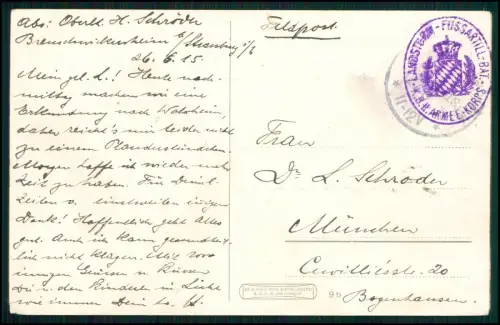 Abs: Oberlt. H. Schröder
Breuschwickersheim b/Strassburg i/E
26.6.15.
Mein gel. L.! Heute nach-
mittag machen wir eine
Erkundung nach Wolxheim,
daher reicht's mir leider nicht
zu einem Plauderstündchen.
Morgen hoffe ich wieder mehr
Zeit zu haben. Für Deine
Zeilen v. einstweilen innigen
Dank! Hoffentlich geht Alles
gut. Auch ich kann gesundheit-
lich nicht klagen. Mit 1000
innigen Grüssen u. Küssen
Dir u. den Kindern in Liebe
wie immer Dein tr. H.
Feldpost.
LANDSTURM-FUSSARTILL-BAT.
K.B.II.ARMEE-KORPS
11-12V
Frau
Dr. L. Schröder
München
Cuvilliésstr. 20
Bogenhausen.
9b